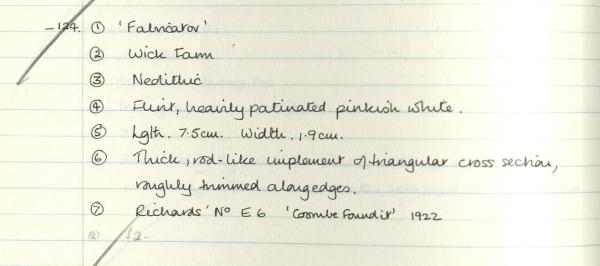 -124. ① 'Fabricator'
② Wick Farm
③ Neolithic
④ Flint, heavily patinated pinkish white.
⑤ Lgth. 7.5cm. Width. 1.9cm.
⑥ Thick, rod-like implement of triangular cross section,
roughly trimmed along edges.
⑦ Richards' No E6 'Coombe Foundit' 1922